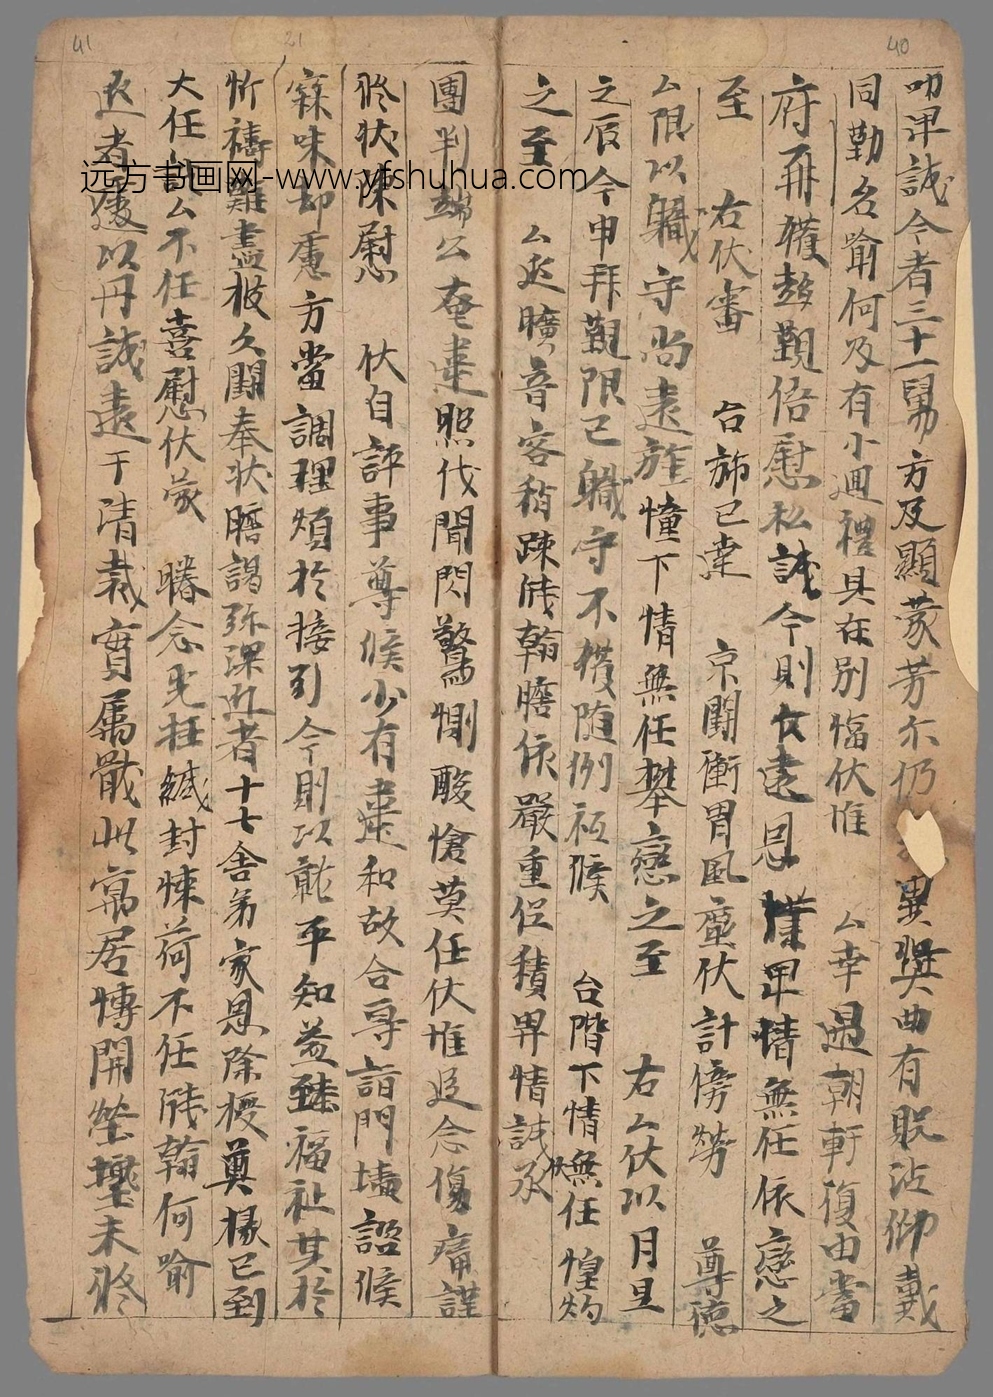 40
叩卑誠今者三十一舅方及顯蒙芳尓仍異獎曲有貺沾仰戴
同勤名喻何及有小迴禮具在别幅伏惟 厶幸遇朝軒復由當
府再獲趍觀倍慰私誠今則遠恩卑情無任依戀之
至 右伏審 台旆已達 京闕衝冒風塵伏計傍勞 尊德
厶限以職守尚遠旌幢下情無任攀戀之至 右厶伏以月旦
之辰今申拜覲限已職守不獲随例祗候 台階下情無任惶灼
之至 厶近曠音容稍踈牋翰瞻依嚴重倍積卑情誠承
團判端公奄棄照代聞問驚惻酸愴莫任伏惟追念傷痛謹
修状陳慰 伏自評事尊候少有違和故合專詣門墻諮候
寐味却慮方當調理煩於接引今則以就平知益臻福祉其於
忻禱難盡披久闕奉状瞻謁弥深近者十七舍弟家恩除授莫椽已到
大任訖厶不任喜慰伏蒙 眷念先枉緘封悚荷不任牋翰何喻
近者遽以丹誠遠于清裁實属戩此寓居慱開塋壥未修
41
21
远方书画网-www.yfshuhua.com